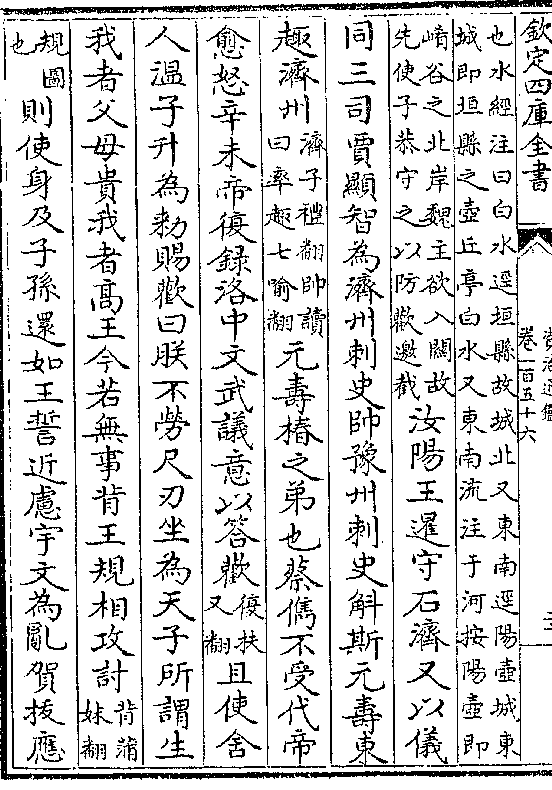 欽定四庫全書
資治通鑑
卷一百五十六
也水經注曰白水逕垣縣故城北又東南逕陽壺城東
城即垣縣之壺丘亭白水又東南流注于河按陽壺即
崤谷之北岸魏主欲入關故
先使子恭守之以防歡邀截
汝陽王暹守石濟又以儀
同三司賈顯智為濟州刺史帥豫州刺史斛斯元壽東
趣濟州
濟子禮翻帥讀
曰率趣七喻翻
元壽椿之弟也蔡儁不受代帝
愈怒辛未帝復録洛中文武議意以答歡
復扶
又翻
且使舍
人温子升為勑賜歡曰朕不勞尺刃坐為天子所謂生
我者父母貴我者高王今若無事背王規相攻討
背蒲
妹翻
規圖
也
則使身及子孫還如王誓近慮宇文為亂賀拔應